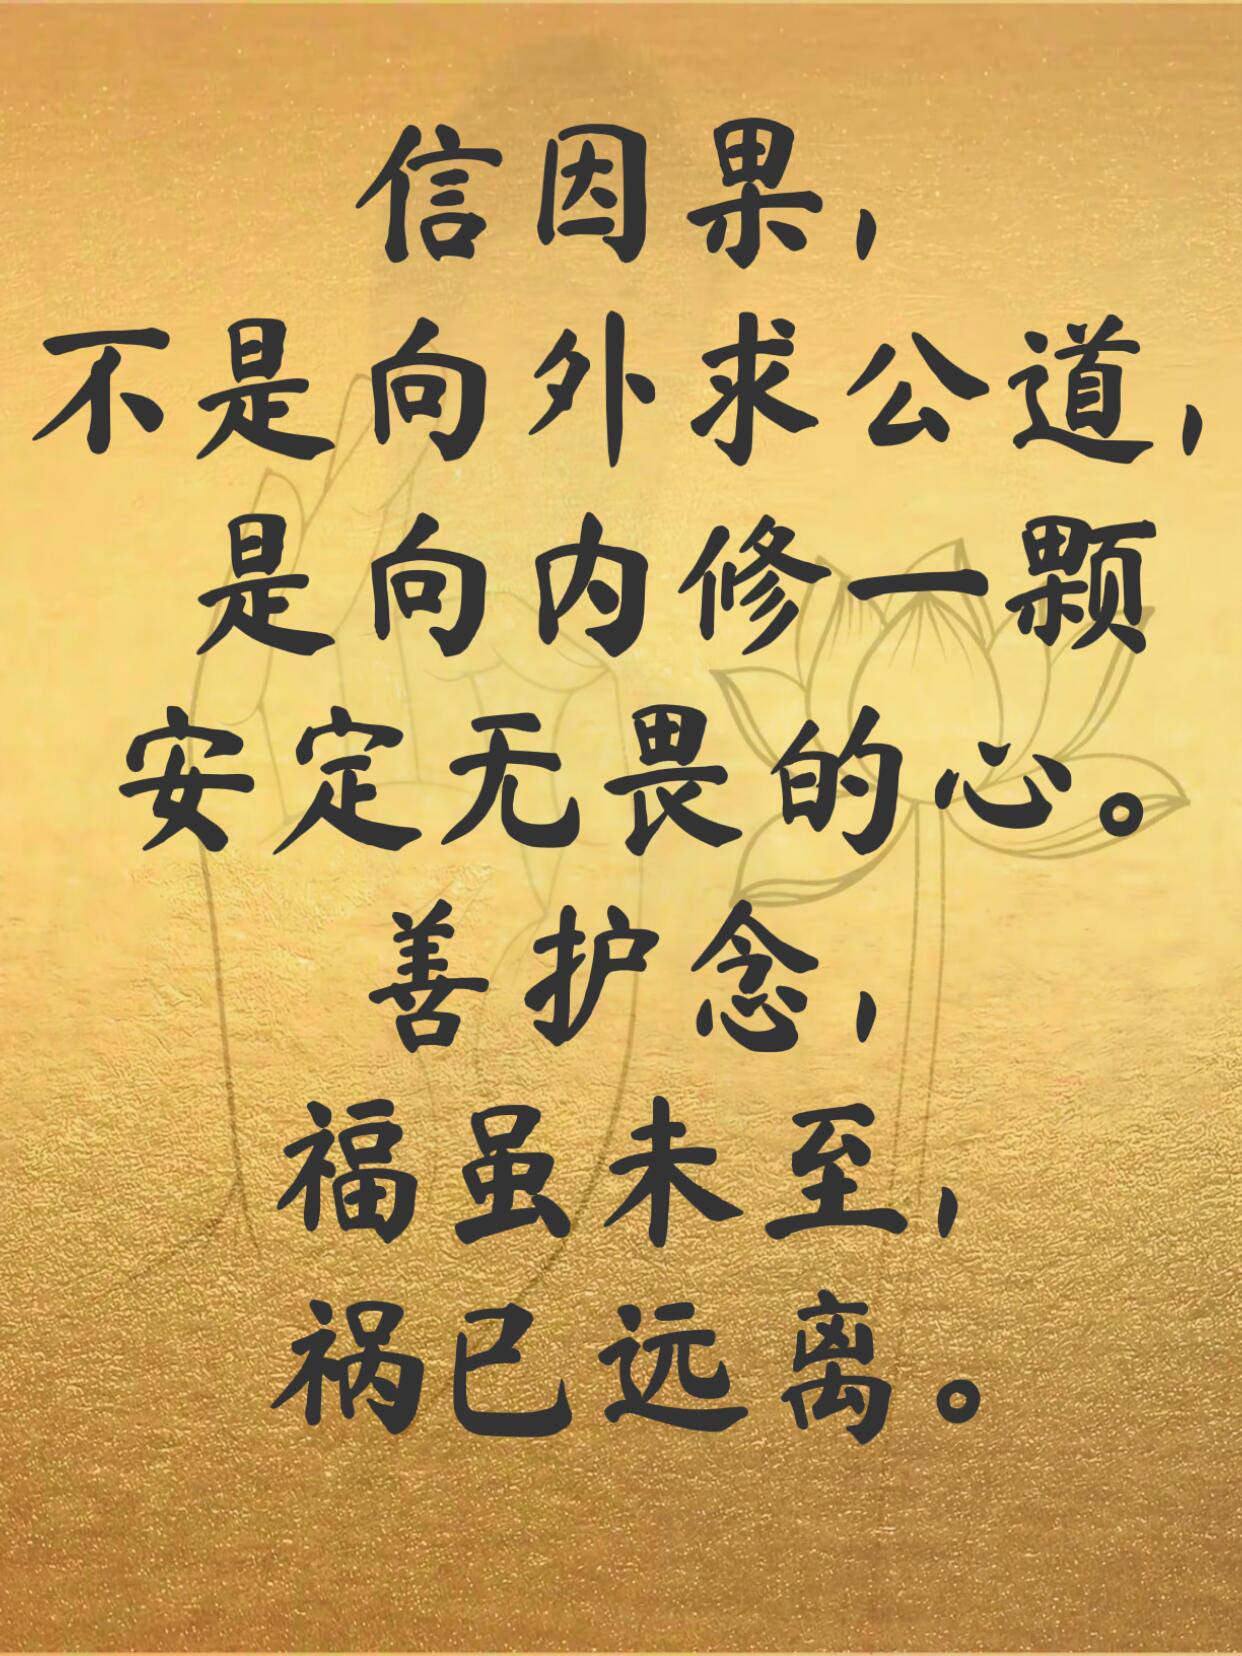 信因果，
不是向外求公道，
是向内修一颗
安定无畏的心。
善护念，
福虽未至，
祸已远离。